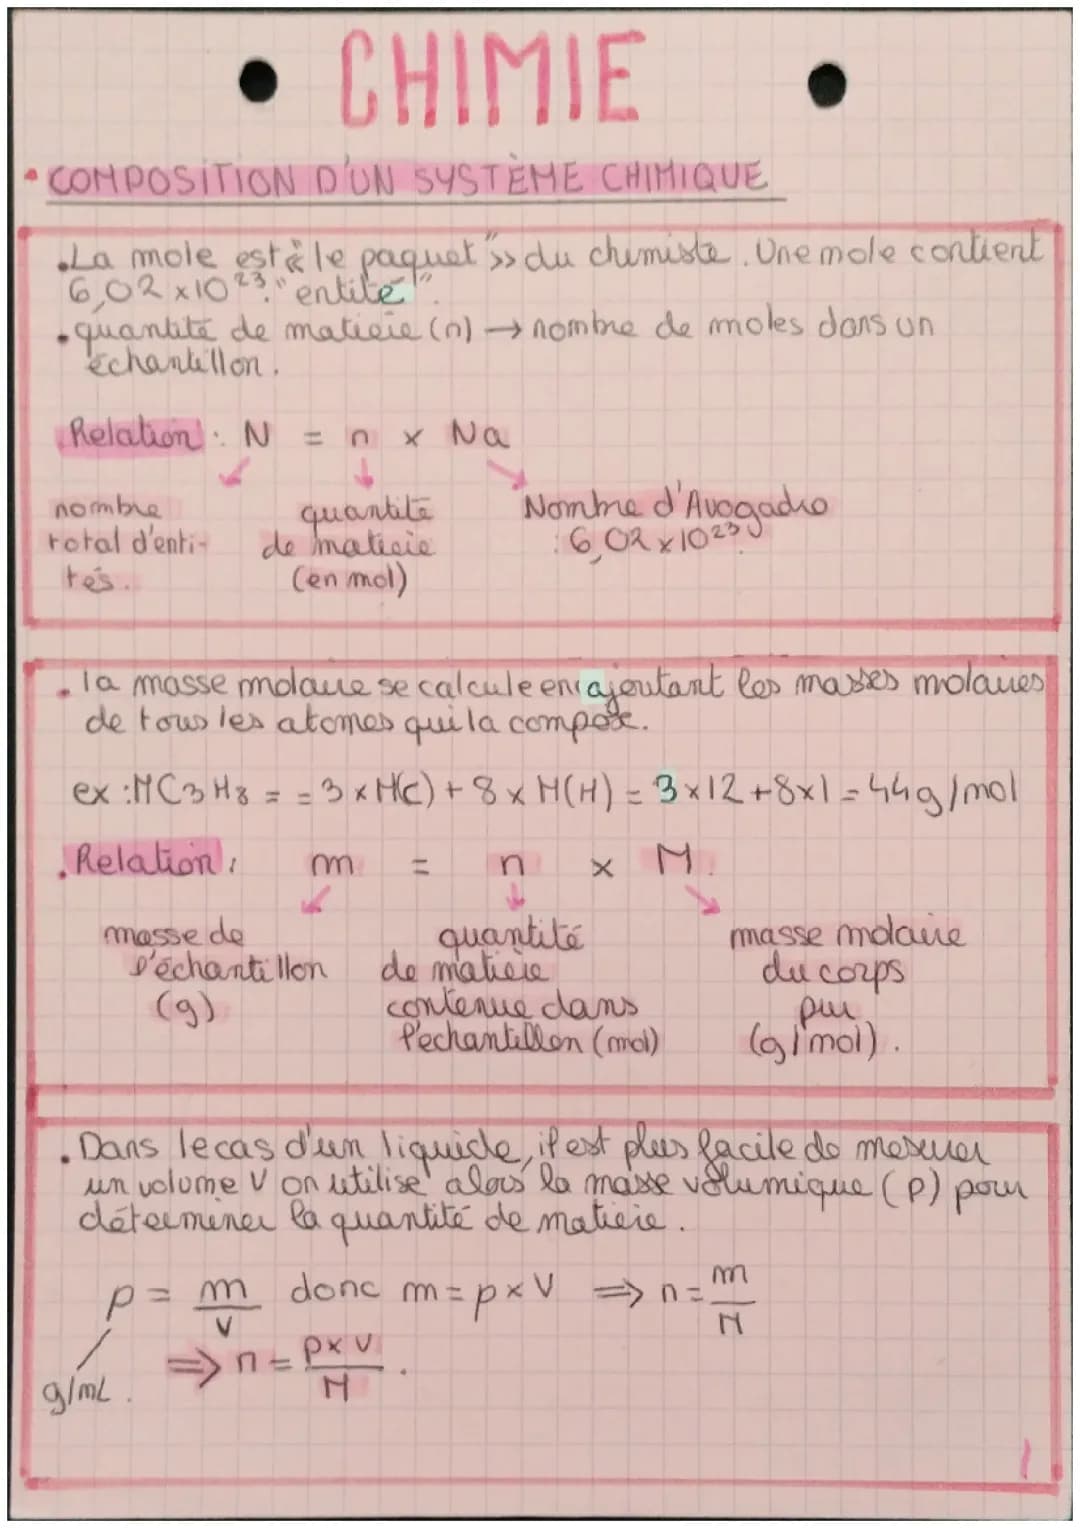 CHIMIE
• COMPOSITION D'UN SYSTÈME CHIMIQUE
. La mole est « "le paquet" » du chimiste. Une mole contient
6,02 x 10²³. "entité".
. quantité de matière (n) → nombre de moles dans un
échantillon.
Relation : N = n x Na
nombre total d'enti-tés.
quantité de matière (en mol)
Nombre d'Avogadro : 6,02 x 10²³.
. la masse molaire se calcule en ajoutant les masses molaires
de tous les atomes qui la compose.
ex : MC3H8 = = 3 x M(C) + 8 x M(H) = 3 x 12 + 8 x 1 = 44g/mol
. Relation : m = n x M.
masse de l'échantillon (g)
quantité de matière contenue dans l'échantillon (mol)
masse molaire du corps pur (g/mol).
. Dans le cas d'un liquide, il est plus facile de mesurer
un volume V on utilise alors la masse volumique (ρ) pour
déterminer la quantité de matière.
ρ = m/V donc m = ρ x V ⟹ n = m/M
⟹ n = ρ x V/M.
g/mL.
1